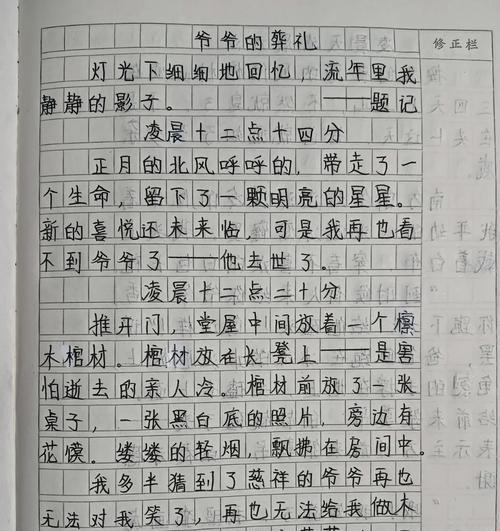 爷爷的葬礼
修正栏
灯光下细细地回忆，流年里我
静静的影子。——题记
凌晨十二点十四分
正月的北风呼呼的，带走了一
个生命，留下了一颗明亮的星星。
新的喜悦还未来临，可是我再也看
不到爷爷了——他去世了。
凌晨十二点二十分
推开门，堂屋中间放着一个檩
木棺材。棺材放在长凳上——是害
怕逝去的亲人冷。棺材前放了一张
桌子，一张黑白底的照片，旁边有
花馍。缕缕的轻烟，飘拂在房间中。
我多半猜到了慈祥的爷爷再也
无法对我笑了，再也无法给我做木